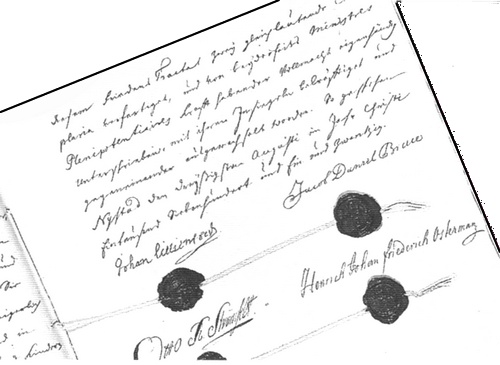 diesem Friedens Tractat zwey gleichlautende
plaria verfertiget, und von beyderseits Ministres
Plenipotentiaires Krafft habender Vollmacht eigenhändig
unterschrieben, mit ihren Insiegeln bekräfftiget und
gegeneinander ausgewechselt worden. So geschehen
Nystad den dreyßigsten Augusti im Jahr Christi
Eintausend Siebenhundert und Ein und Zwantzig.
Jacob Daniel Bruce
Johan Lillienstedt
Henrich Johan Friederich Osterman
Otto R Strömfelt